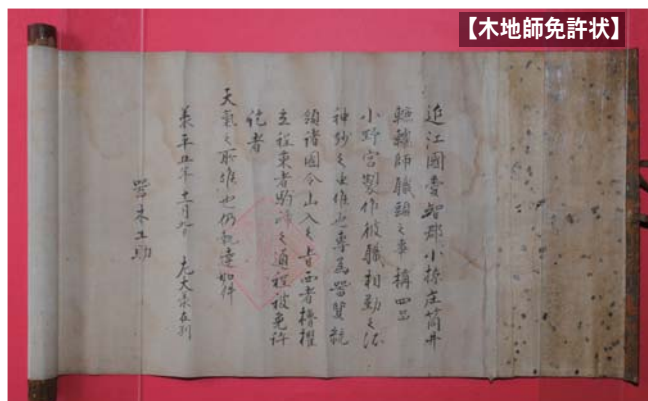 【木地師免許状】
近江國愛智郡小椋庄筒井
轆轤師職頭之事稱四品
小野宮製作彼職相勤之法
神妙之由候也專為器質統
領諸國令山入之旨西者櫓櫂
立程東者駒蹄之通程被免許
訖者
天氣之所候也仍執達如件
承平五年十一月九日 左大丞在判
器木工助